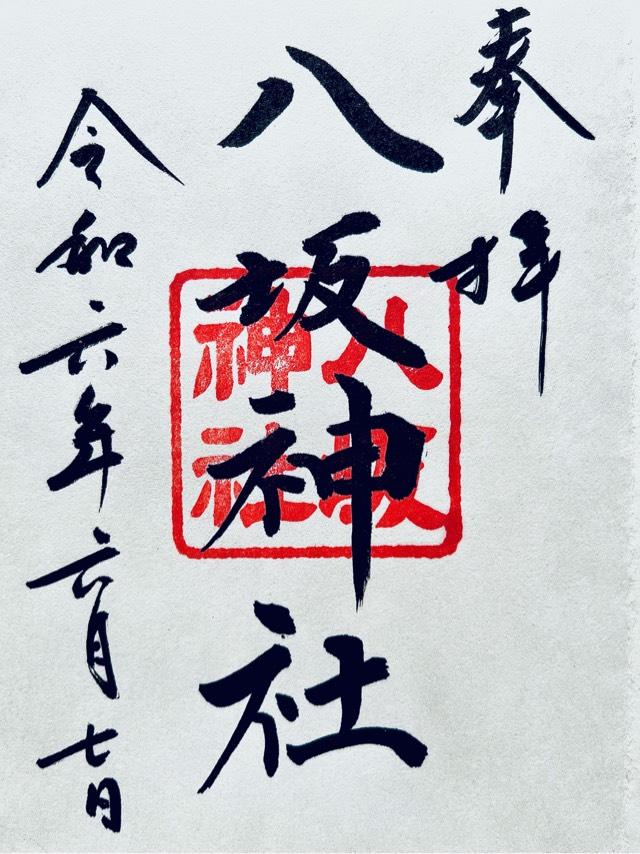 奉拝
八坂神社
八坂
神社
令和六年六月七日